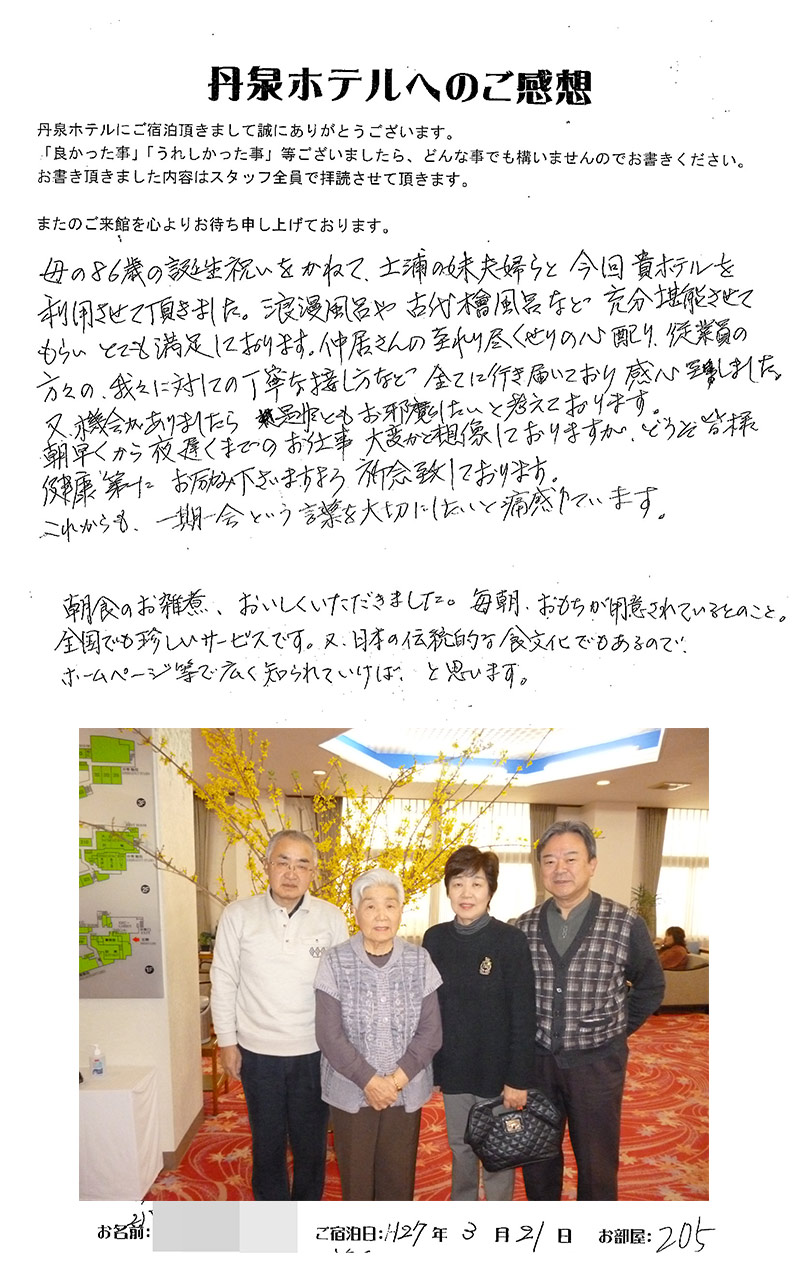 丹泉ホテルへのご感想
丹泉ホテルにご宿泊頂きまして誠にありがとうございます。
「良かった事」「うれしかった事」等ございましたら、どんな事でも構いませんのでお書きください。
お書き頂きました内容はスタッフ全員で拝読させて頂きます。
またのご来館を心よりお待ち申し上げております。
母の86歳の誕生祝いをかねて、土浦の妹夫婦らと今回貴ホテルを
利用させて頂きました。浪漫風呂や古代檜風呂など充分堪能させて
もらいとても満足しております。仲居さんの至れり尽くせりの心配り、従業員の
方々の、我々に対しての丁寧な接し方など全てに行き届いており感心しました。
又、機会がありましたら是非ともお邪魔したいと考えております。
朝早くから夜遅くまでのお仕事大変かと想像しておりますが、どうぞ皆様
健康第一にお励み下さいますよう祈念致しております。
これからも、一期一会という言葉を大切にしたいと痛感しています。
朝食のお雑煮、おいしくいただきました。毎朝、おもちが用意されているとのこと。
全国でも珍しいサービスです。又、日本の伝統的な食文化でもあるので、
ホームページ等で広く知られていけば、と思います。
3F
2F
1F
お名前: ご宿泊日:H27年 3月21日 お部屋:205